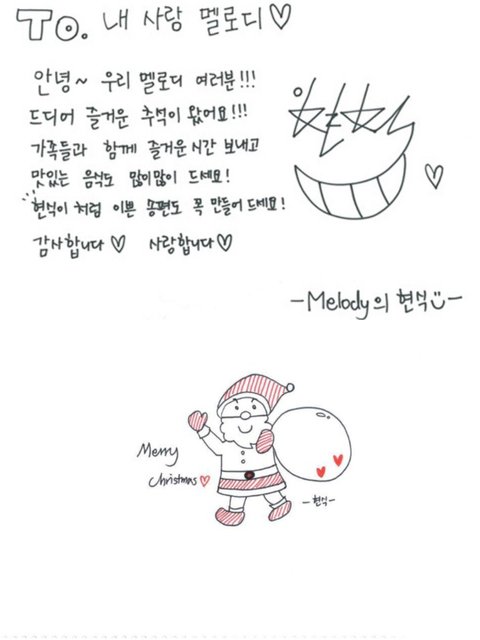 To. 내 사랑 멜로디♡
안녕~ 우리 멜로디 여러분!!!
드디어 즐거운 추석이 왔어요!!!
가족들과 함께 즐거운 시간 보내고
맛있는 음식도 많이많이 드세요!
현식이 처럼 이쁜 송편도 꼭 만들어 드세요!
감사합니다♡ 사랑합니다♡
-Melody의 현식-
Merry
christmas♡
-현식-